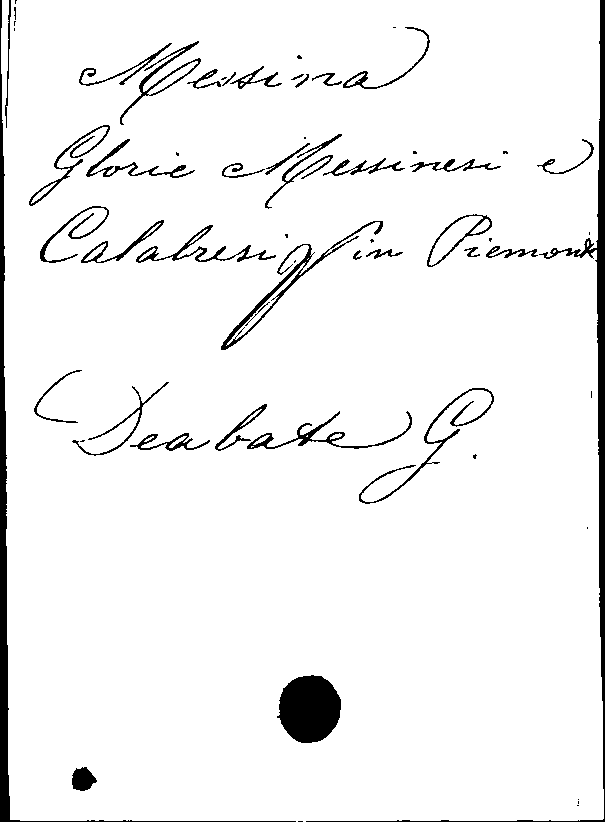 Messina
Glorie Messinesi e
Calabresi in Piemonte
Deabate G.